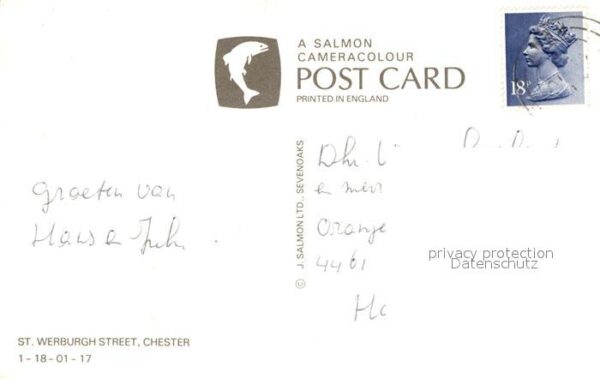 A SALMON
CAMERACOLOUR
POST CARD
PRINTED IN ENGLAND
18P
Groeten van
Hans en
© J. SALMON LTD., SEVENOAKS
Dhr.
en mevr
Oranje
4461
privacy protection
Datenschutz
ST. WERBURGH STREET, CHESTER
1-18-01-17